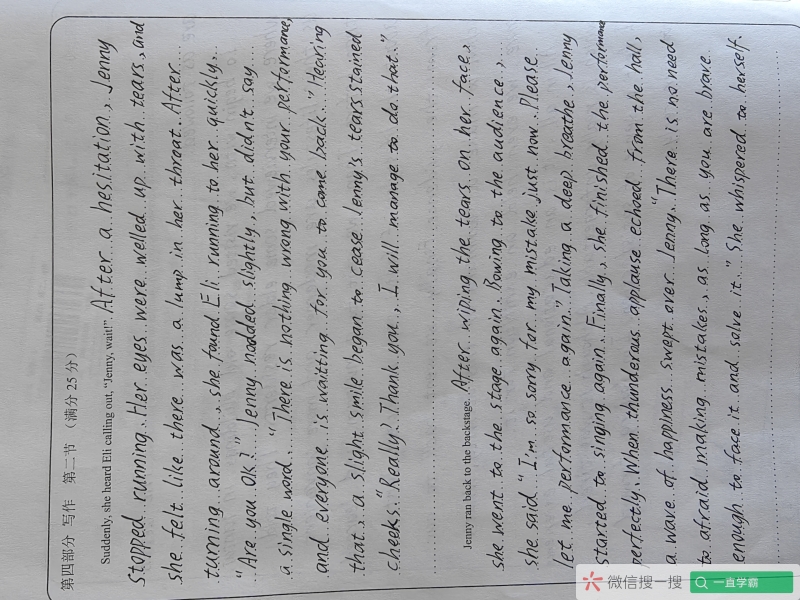 第四部分 写作 第二节 (满分 25 分)
Suddenly, she heard Eli calling out, "Jenny, wait!" After a hesitation, Jenny
stopped running. Her eyes were welled up with tears, and
she felt like there was a lump in her throat. After
turning around, she found Eli running to her quickly.
"Are you OK?" Jenny nodded slightly, but didn't say
a single word. "There is nothing wrong with your performance,
and everyone is waitting for you to come back." Hearing
that, a slight smile began to cease Jenny's tears stained
cheeks. "Really? Thank you, I will manage to do that."
Jenny ran back to the backstage. After wiping the tears on her face,
she went to the stage again. Bowing to the audience,
she said "I'm so sorry for my mistake just now. Please
let me performance again." Taking a deep breathe, Jenny
started to singing again. Finally, she finished the performance
perfectly. When thunderous applause echoed from the hall,
a wave of happiness swept over Jenny. "There is no need
to afraid making mistakes, as long as you are brave
enough to face it and solve it." She whispered to herself.
微信搜一搜
一直学霸